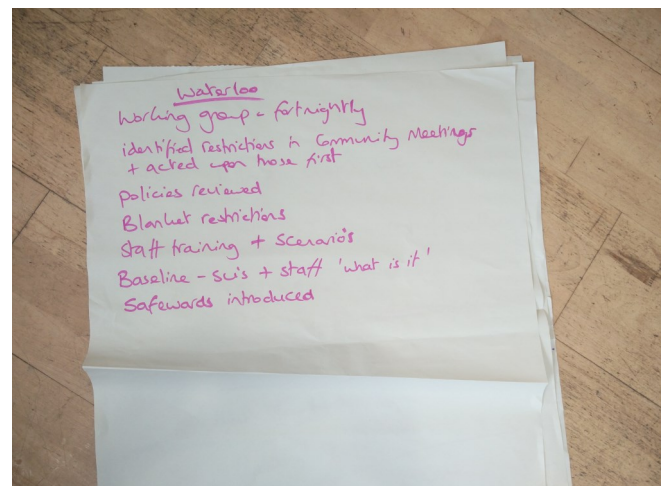 Waterloo
Working group - fortnightly
identified restrictions in Community Meetings
+ acted upon those first
policies reviewed
Blanket restrictions
Staff training + Scenario's
Baseline - su's + staff 'what is it'
Safewards introduced